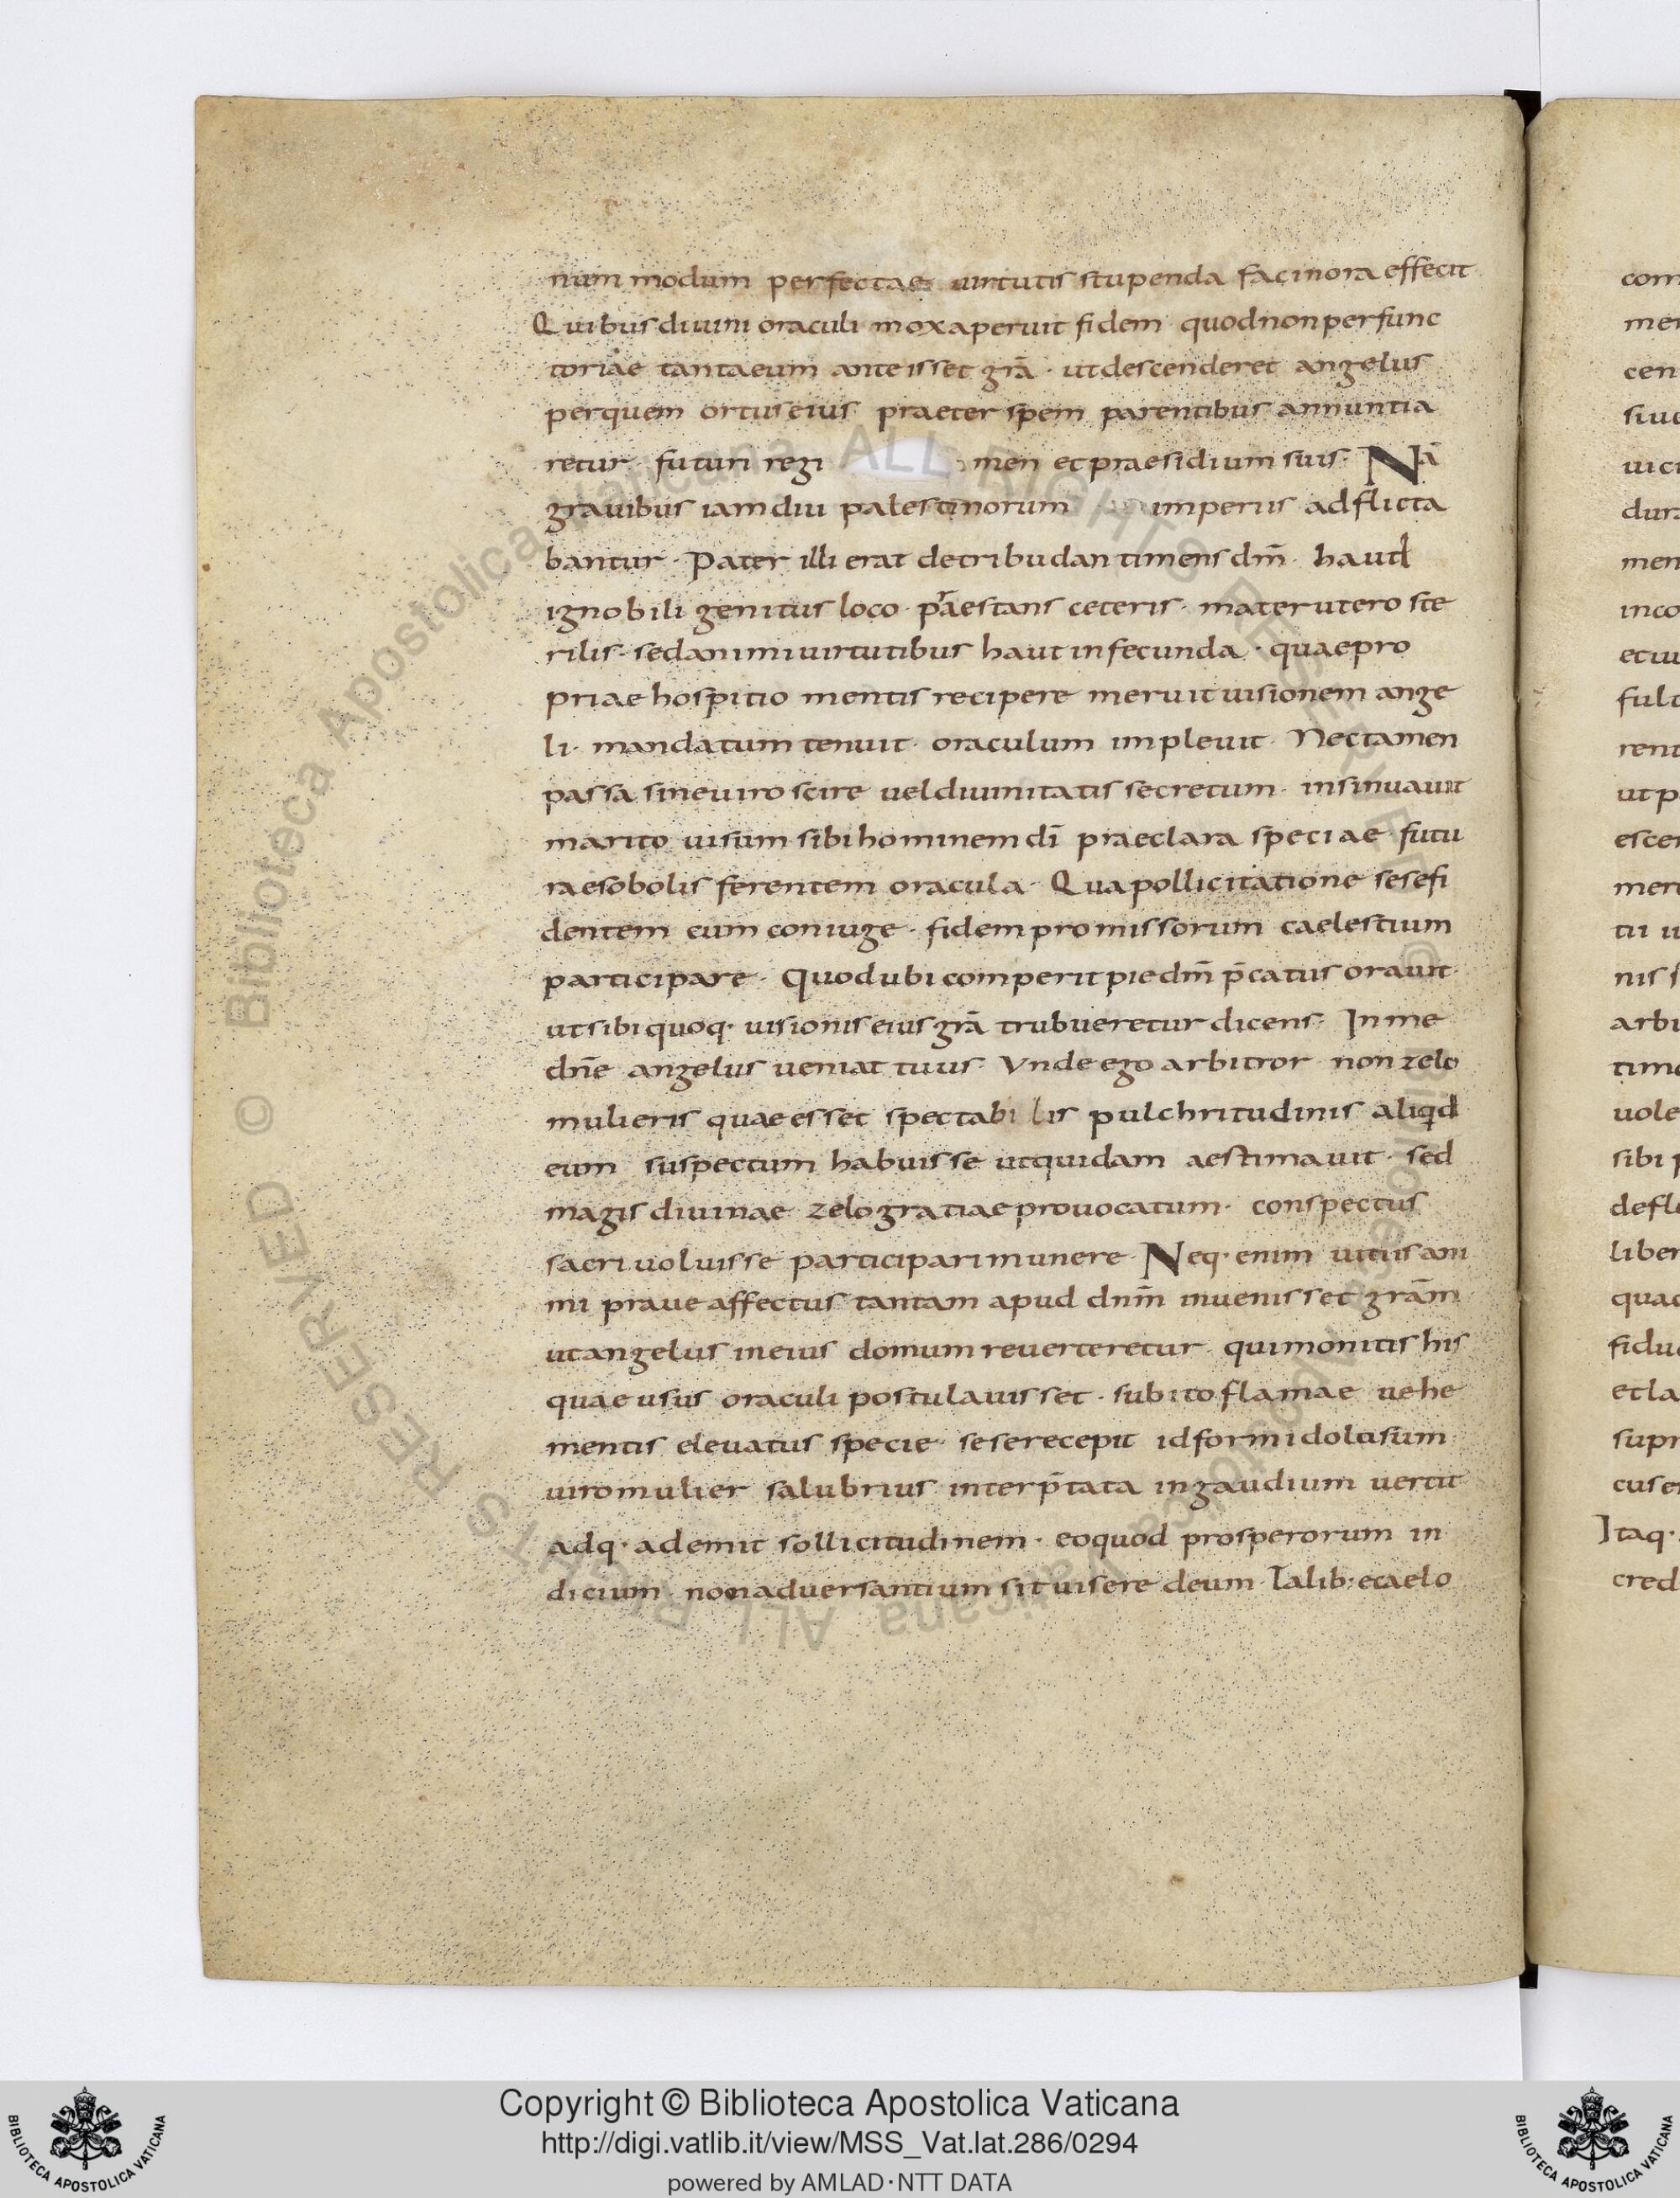 num modum perfectae uirtutis stupenda facinora effecit
Quibus diuini oraculi mox aperuit fidem quod non perfunc
toriae tanta eum anteisset grā · ut descenderet angelus
per quem ortus eius praeter spem parentibus annuntia
retur · futuri regi men et praesidium suis · Nā
grauibus iam diu palestinorum imperiis adflicta
bantur · Pater illi erat de tribu dan timens dm̄ · haud
ignobili genitus loco · praestans ceteris · mater utero ste
rilis · sed animi uirtutibus haut infecunda · quae pro
priae hospitio mentis recipere meruit uisionem ange
li · mandatum tenuit · oraculum impleuit · Nec tamen
passa sine uiro scire uel diuinitatis secretum · insinuauit
marito uisum sibi hominem dī praeclara speciae · futu
rae sobolis ferentem oracula · Qua pollicitatione sese fi
dentem eum coniuge · fidem promissorum caelestium
participare · Quod ubi comperit pie dm̄ p̄catus orauit ·
ut sibi quoq· uisionis eius grā trubueretur dicens · In me
dn̄e angelus ueniat tuus · Vnde ego arbitror non zelo
mulieris quae esset spectabilis pulchritudinis aliqd
eum suspectum habuisse ut quidam aestimauit · sed
magis diuinae zelo gratiae prouocatum · conspectus
sacri uoluisse participari munere · Neq· enim uitiis ani
mi praue affectus tantam apud dnm̄ inuenisset grām
ut angelus in eius domum reuerteretur · qui monitis his
quae usus oraculi postulauisset · subito flamae uehe
mentis eleuatus specie · sese recepit id formidolusum
uiro mulier salubrius interp̄tata in gaudium uertit
adq· ademit sollicitudinem · eo quod prosperorum in
dicium · non aduersantium sit uisere deum · Talib: e caelo
Copyright © Biblioteca Apostolica Vaticana
http://digi.vatlib.it/view/MSS_Vat.lat.286/0294
powered by AMLAD·NTT DATA
BIBLIOTECA APOSTOLICA VATICANA
BIBLIOTECA APOSTOLICA VATICANA